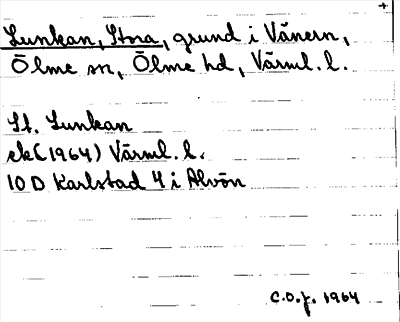 +
Lunkan, Stora, grund i Vänern,
Ölme sn, Ölme hd, Värml. l.
St. Lunkan
ek (1964) Värml. l.
10 D Karlstad 4 i Alvön
C.O.f. 1964